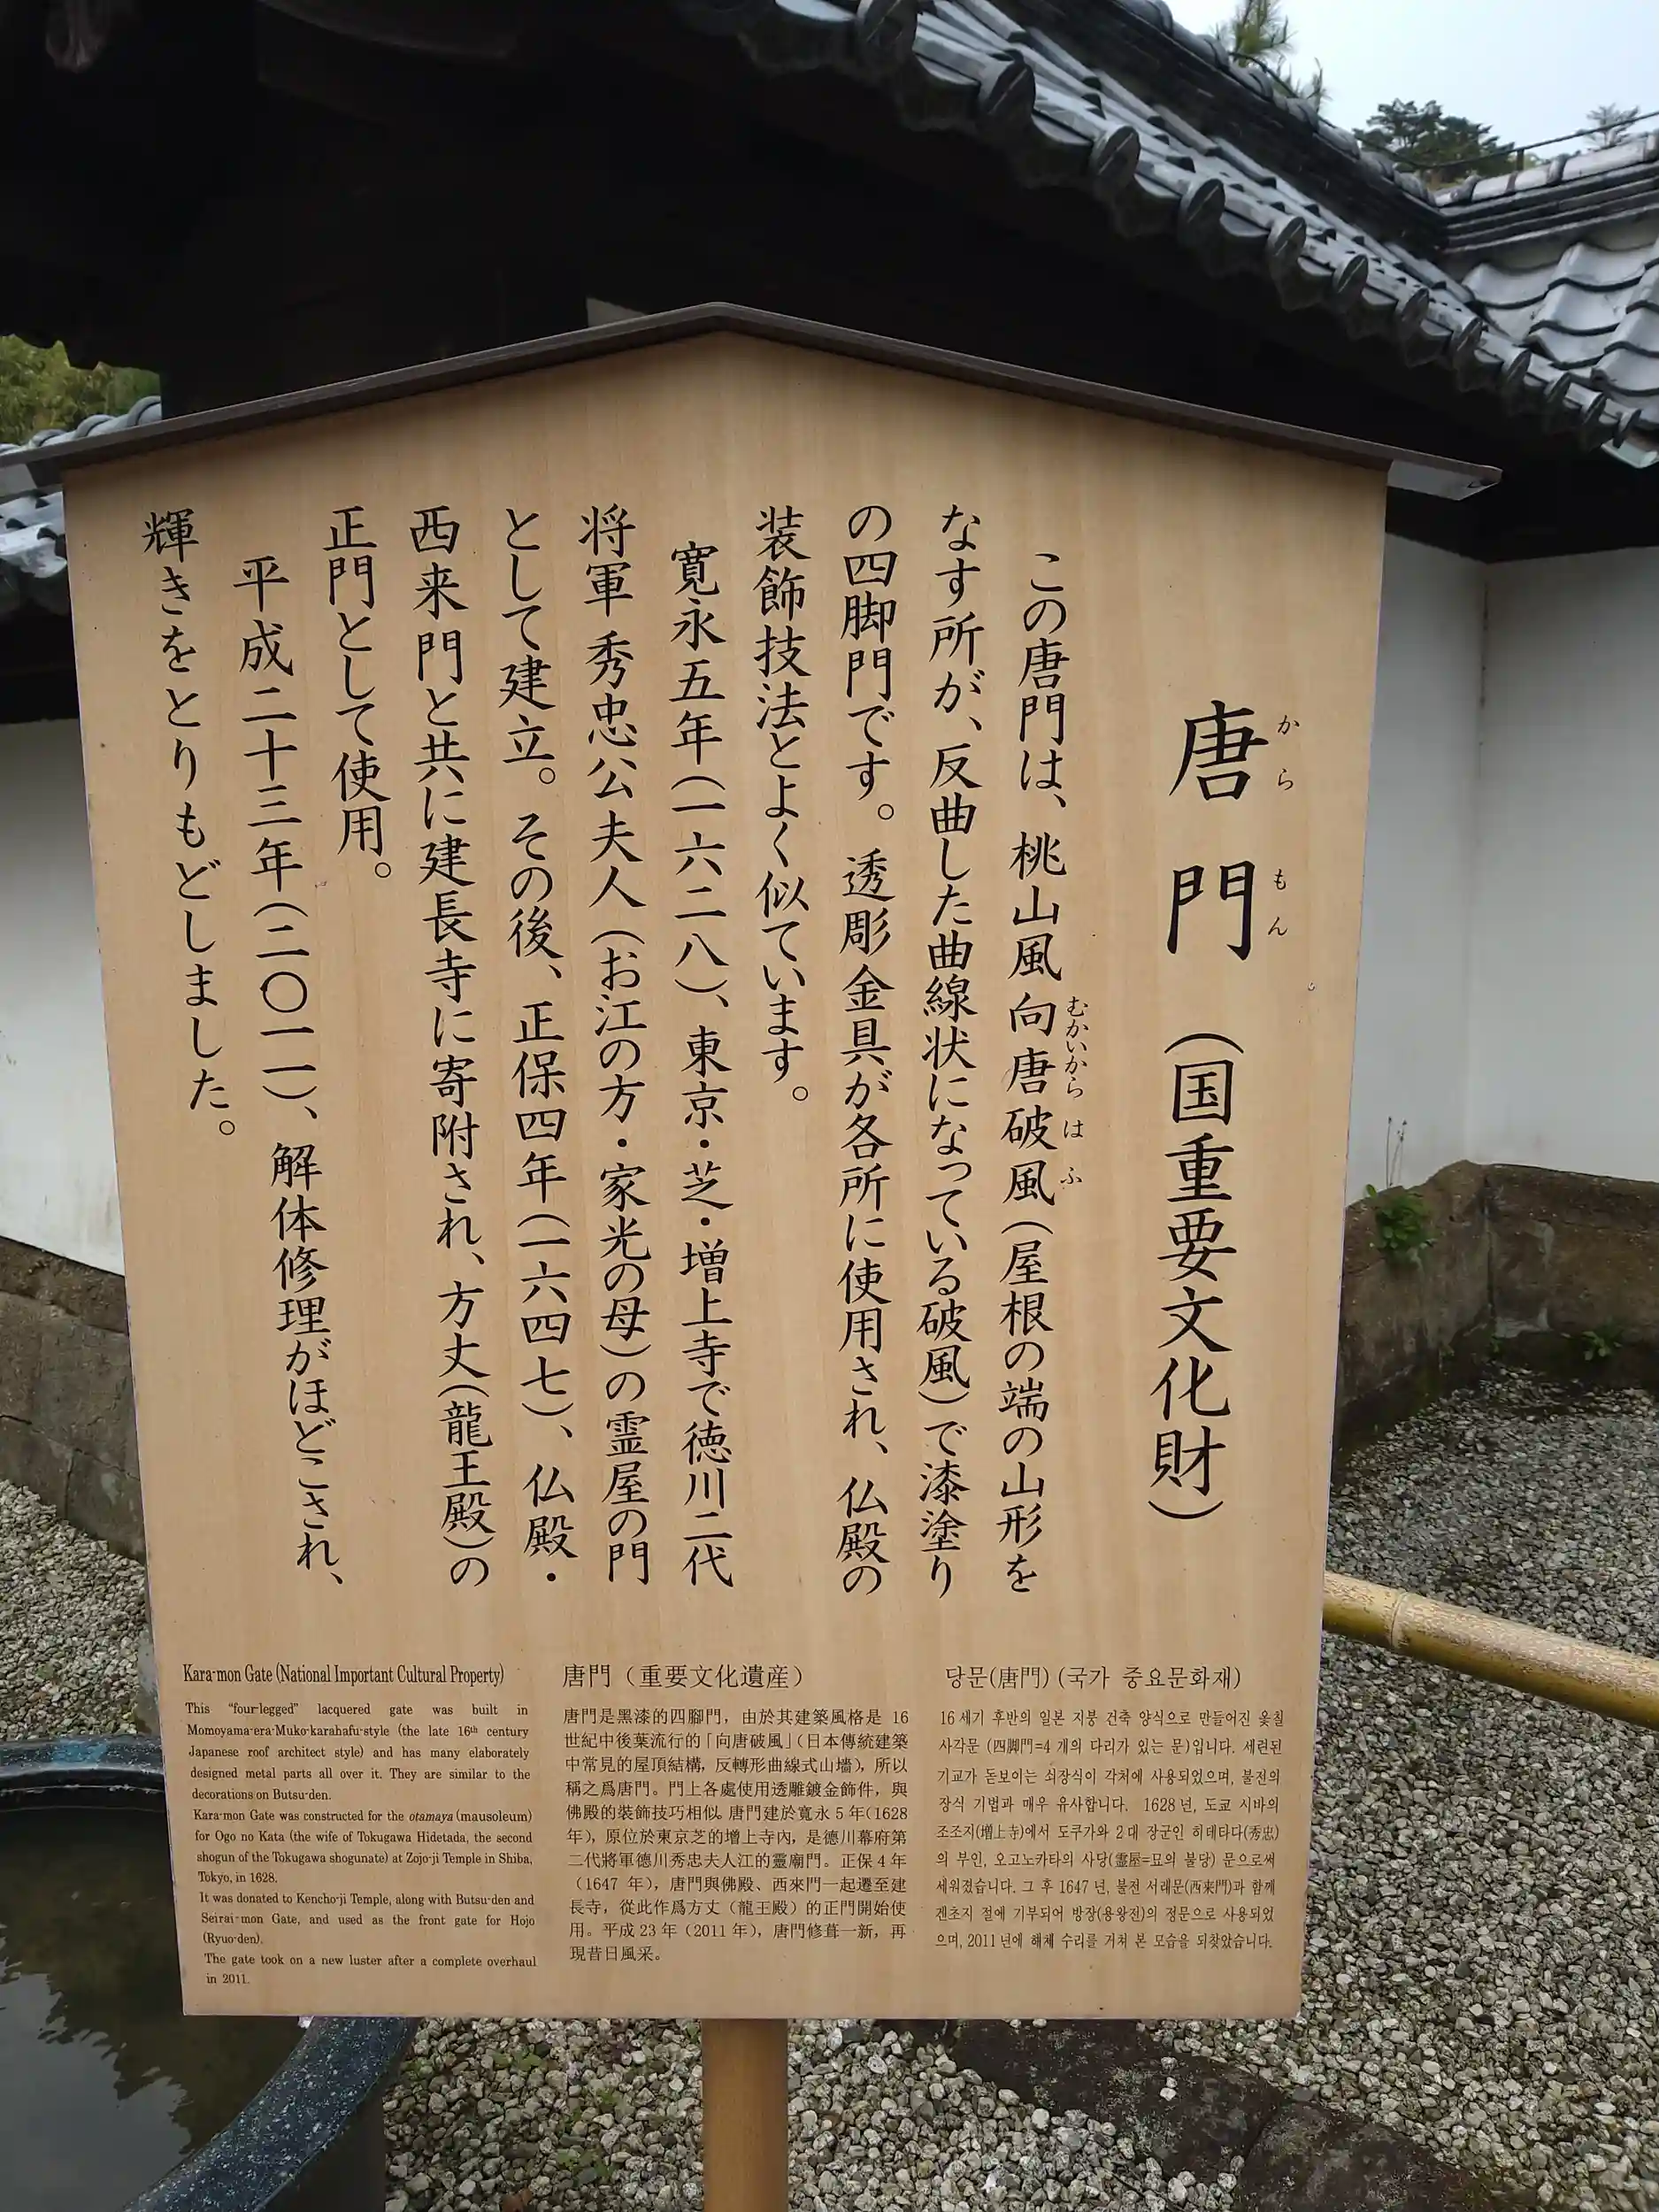 唐門(国重要文化財)
からもん
この唐門は、桃山風向唐破風(屋根の端の山形を
むかいからはふ
なす所が、反曲した曲線状になっている破風)で漆塗り
の四脚門です。透彫金具が各所に使用され、仏殿の
装飾技法とよく似ています。
寛永五年(一六二八)、東京・芝・増上寺で徳川二代
将軍秀忠公夫人(お江の方・家光の母)の霊屋の門
として建立。その後、正保四年(一六四七)、仏殿・
西来門と共に建長寺に寄附され、方丈(龍王殿)の
正門として使用。
平成二十三年(二〇一一)、解体修理がほどこされ、
輝きをとりもどしました。
Kara-mon Gate (National Important Cultural Property)
This “four-legged” lacquered gate was built in
Momoyama-era-Muko-karahafu-style (the late 16th century
Japanese roof architect style) and has many elaborately
designed metal parts all over it. They are similar to the
decorations on Butsu-den.
Kara-mon Gate was constructed for the otamaya (mausoleum)
for Ogo no Kata (the wife of Tokugawa Hidetada, the second
shogun of the Tokugawa shogunate) at Zojo-ji Temple in Shiba,
Tokyo, in 1628.
It was donated to Kencho-ji Temple, along with Butsu-den and
Seirai-mon Gate, and used as the front gate for Hojo
(Ryuo-den).
The gate took on a new luster after a complete overhaul
in 2011.
唐門（重要文化遺産）
唐門是黑漆的四腳門，由於其建築風格是 16
世紀中後葉流行的「向唐破風」（日本傳統建築
中常見的屋頂結構，反轉形曲線式山墻），所以
稱之爲唐門。門上各處使用透雕鍍金飾件，與
佛殿的裝飾技巧相似。唐門建於寬永 5 年（1628
年），原位於東京芝的增上寺內，是德川幕府第
二代將軍德川秀忠夫人江的靈廟門。正保 4 年
（1647 年），唐門與佛殿、西來門一起遷至建
長寺，從此作爲方丈（龍王殿）的正門開始使
用。平成 23 年（2011 年），唐門修葺一新，再
現昔日風采。
당문(唐門) (국가 중요문화재)
16 세기 후반의 일본 지붕 건축 양식으로 만들어진 옻칠
사각문 (四脚門=4 개의 다리가 있는 문)입니다. 세련된
기교가 돋보이는 쇠장식이 각처에 사용되었으며, 불전의
장식 기법과 매우 유사합니다. 1628 년, 도쿄 시바의
조조지(增上寺)에서 도쿠가와 2 대 장군인 히데타다(秀忠)
의 부인, 오고노카타의 사당(霊屋=묘의 불당) 문으로써
세워졌습니다. 그 후 1647 년, 불전 서래문(西来門)과 함께
겐초지 절에 기부되어 방장(용왕전)의 정문으로 사용되었
으며, 2011 년에 해체 수리를 거쳐 본 모습을 되찾았습니다.